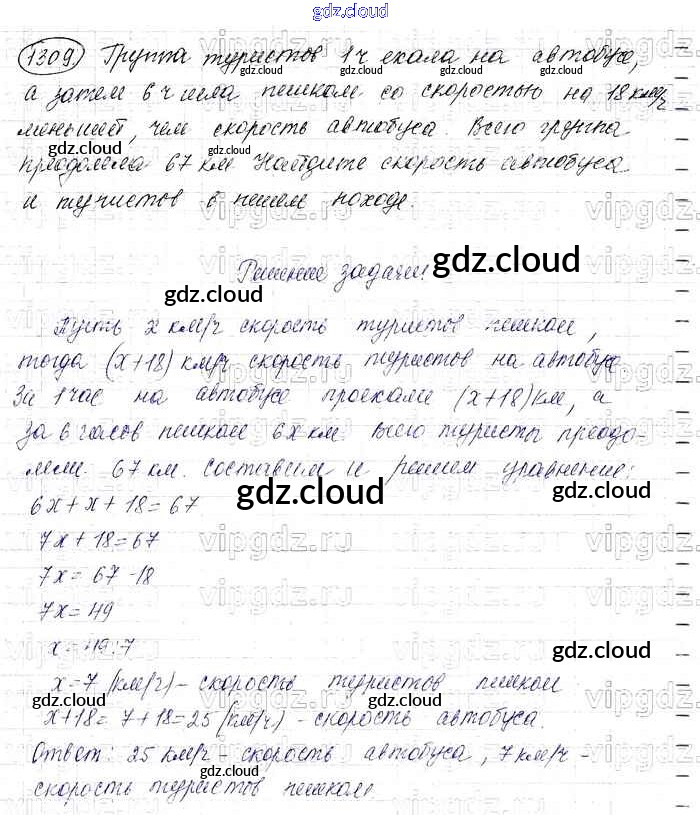 gdz.cloud
1309. Группа туристов 1 ч ехала на автобусе,
а затем 6 ч шла пешком со скоростью на 18 км/ч
меньшей, чем скорость автобуса. Всего группа
преодолела 67 км. Найдите скорость автобуса
и туристов в пешем походе.
Решение задачи:
Пусть x км/ч скорость туристов пешком,
тогда (x+18) км/ч скорость туристов на автобусе.
За 1 час на автобусе проехали (x+18) км, а
за 6 часов пешком 6x км. Всего туристы преодо-
лели 67 км. составим и решим уравнение:
6x+x+18=67
7x+18=67
7x=67-18
7x=49
x=49:7
x=7 (км/ч) - скорость туристов пешком
x+18=7+18=25 (км/ч) - скорость автобуса.
Ответ: 25 км/ч - скорость автобуса, 7 км/ч -
скорость туристов пешком.